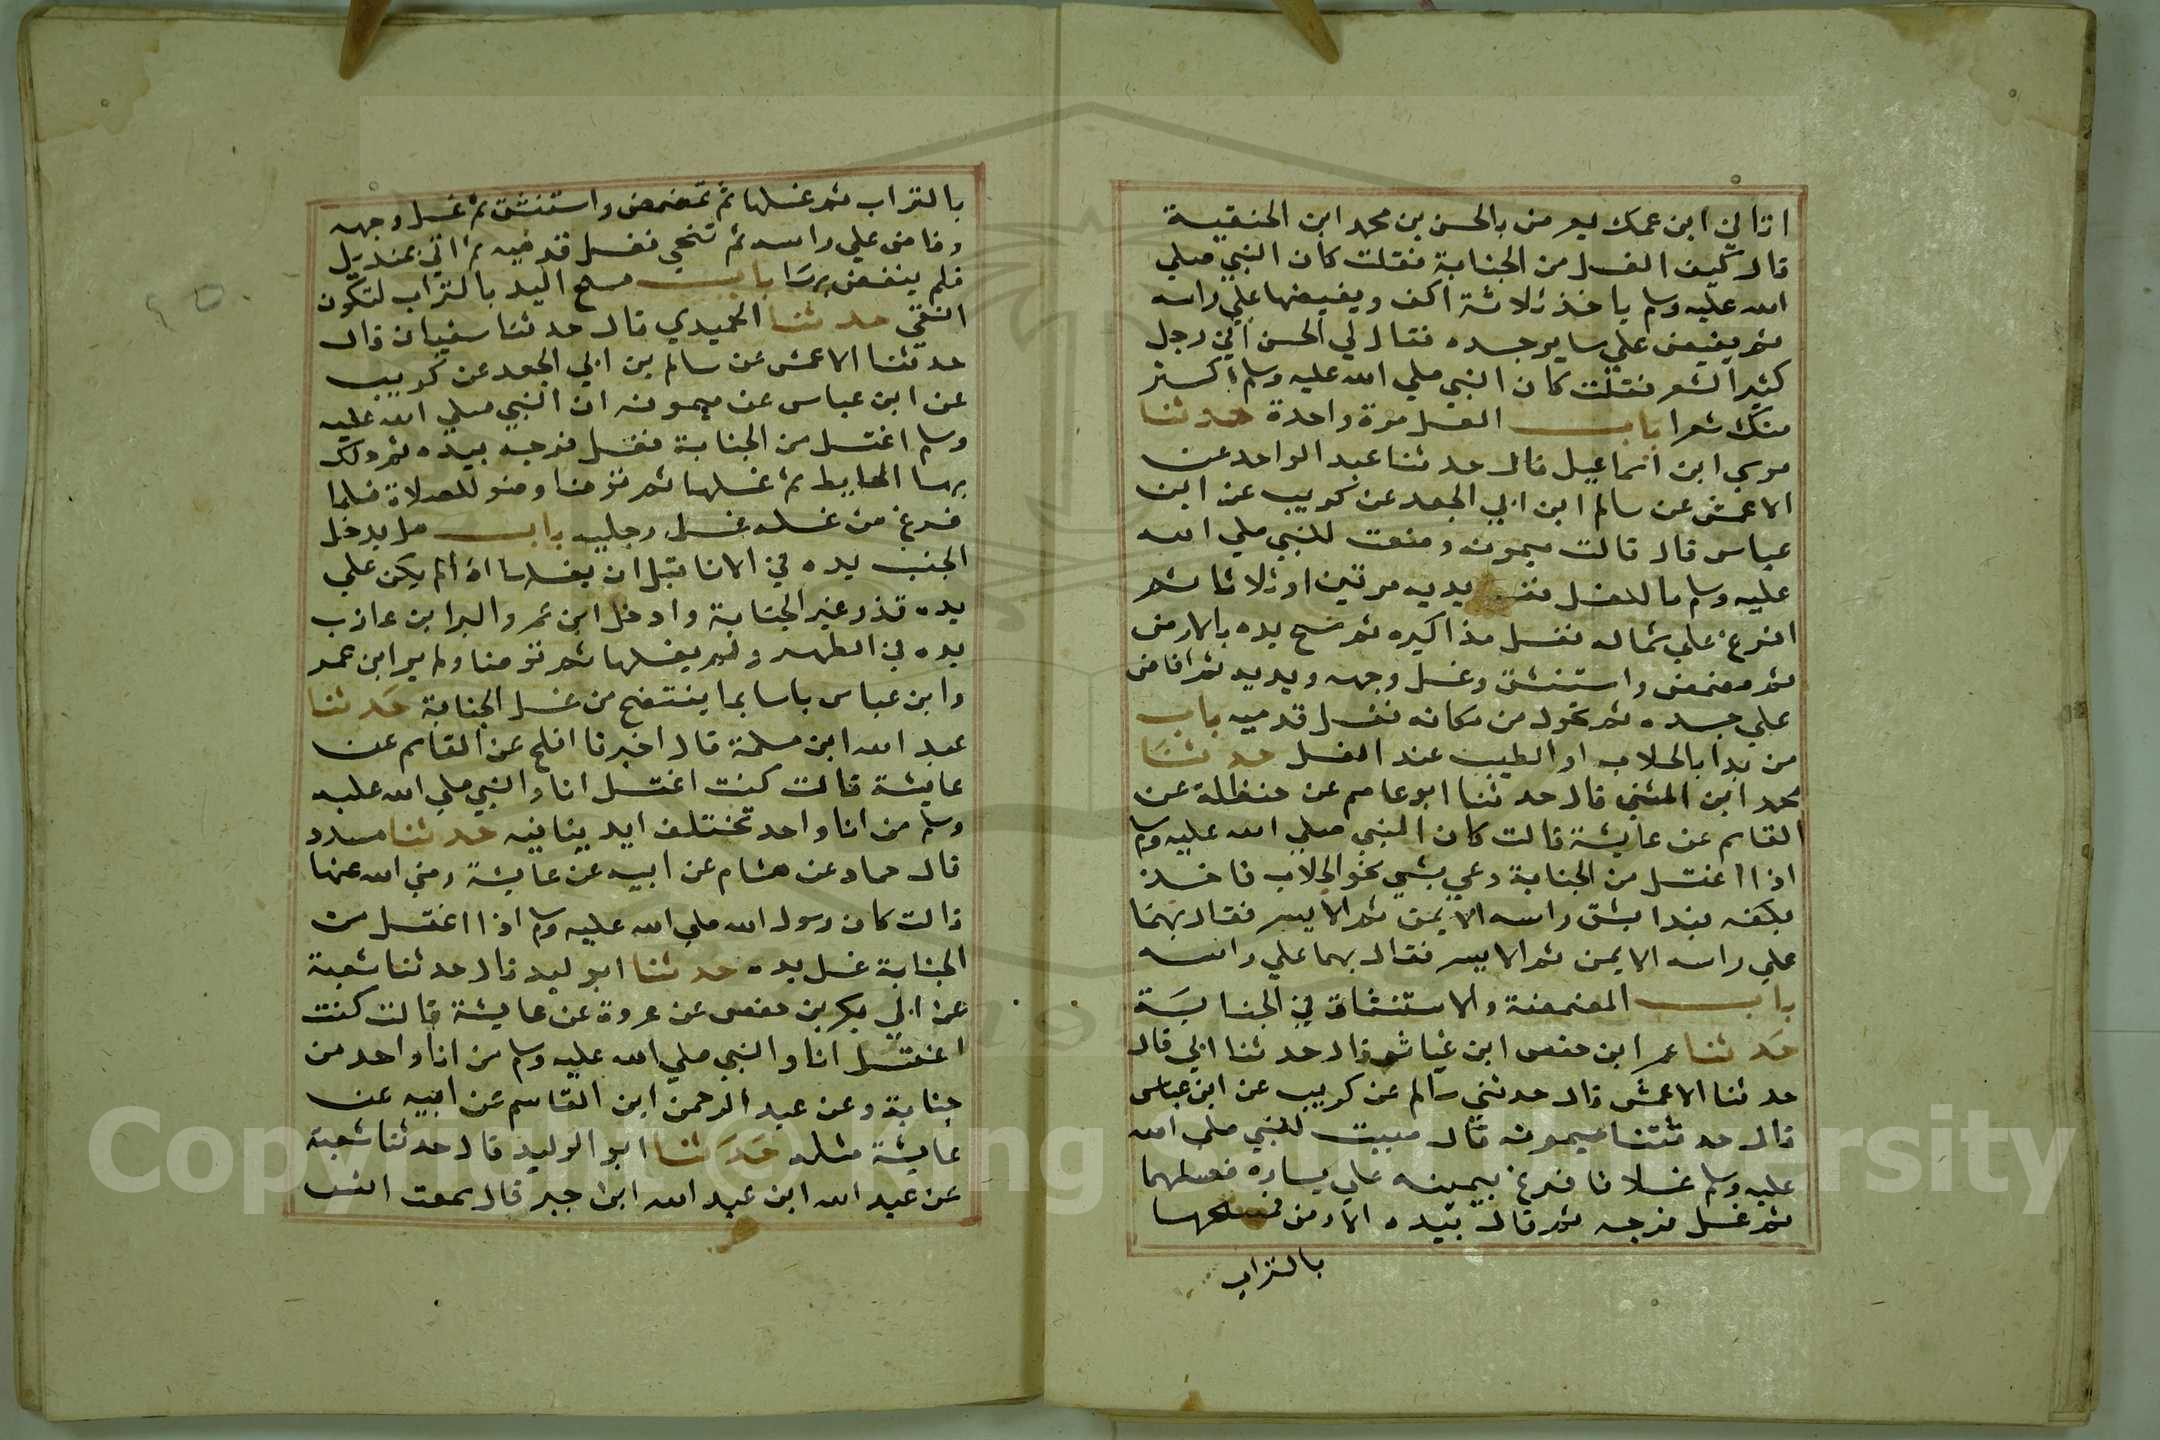 اتاني ابن عمك يعرض بالحسن بن محمد ابن الحنفية
قال كيف الغسل من الجنابة فقلت كان النبي صلي
الله عليه وسلم ياخذ ثلاثة اكف ويفيضها علي راسه
ثم يفيض علي ساير جسده فقال لي الحسن اني رجل
كثير الشعر فقلت كان النبي صلي الله عليه وسلم اكثر
منك شعرا باب الغسل مرة واحدة حدثنا
موسي ابن اسماعيل قال حدثنا عبد الواحد عن
الاعمش عن سالم ابن ابي الجعد عن كريب عن ابن
عباس قال قالت ميمونه وضعت للنبي صلي الله
عليه وسلم ما للغسل يديه مرتين او ثلاثا ثم
افرغ علي شماله فغسل مذاكيره ثم مسح يده بالارض
ثم مضمض واستنشق وغسل وجهه ويديه ثم افاض
علي جسده ثم تحول من مكانه فغسل قدميه باب
من بدا بالحلاب او الطيب عند الغسل حدثنا
محمد ابن المثني قال حدثنا ابو عاصم عن حنظلة عن
القاسم عن عايشة قالت كان النبي صلي الله عليه وسلم
اذا اغتسل من الجنابة دعي بشي نحو الحلاب فاخذ
بكفه فبدا بشق راسه الايمن ثم الايسر فقال بهما
علي راسه الايمن ثم الايسر فقال بهما علي راسه
باب المضمضة والاستنشاق في الجنابة
حدثنا عمر ابن حفص ابن غياث قال حدثنا ابي قال
حدثنا الاعمش قال حدثني سالم عن كريب عن ابن عباس
قال حدثتنا ميمونه قال صببت للنبي صلي الله
عليه وسلم غسلا فافرغ بيمينه علي يساره فغسلهما
ثم غسل فرجه ثم قال بيده الارض فمسحها
بالتراب
بالتراب ثم غسلها ثم تمضمض واستنشق ثم غسل وجهه
وفاض علي راسه ثم تنحي فغسل قدميه ثم اتي بمنديل
فلم ينفض بها باب مسح اليد بالتراب لتكون
انقي حدثنا الحميدي قال حدثنا سفيان قال
حدثنا الاعمش عن سالم بن ابي الجعد عن كريب
عن ابن عباس عن ميمونه ان النبي صلي الله عليه
وسلم اغتسل من الجنابة فغسل فرجه بيده ثم دلك
بها الحايط ثم غسلها ثم توضا وضو للصلاة فلما
فرغ من غسله غسل رجليه باب هل يدخل
الجنب يده في الانا قبل ان يغسلها اذا لم يكن علي
يده قذر غير الجنابة وادخل ابن عمر والبرا بن عازب
يده في الطهر ولم يغسلها ثم توضا ولم ير ابن عمر
وابن عباس باسا بما ينتضح من غسل الجنابة حدثنا
عبد الله ابن مسلمة قال اخبرنا افلح عن القاسم عن
عايشة قالت كنت اغتسل انا والنبي صلي الله عليه
وسلم من انا واحد تختلف ايدينا فيه حدثنا مسدد
قال حماد عن هشام عن ابيه عن عايشة رضي الله عنها
قالت كان رسول الله صلي الله عليه وسلم اذا اغتسل من
الجنابة غسل يده حدثنا ابو ليد قال حدثنا شعبة
عن ابي بكر بن حفص عن عروة عن عايشة قالت كنت
اغتسل انا والنبي صلي الله عليه وسلم من انا واحد من
جنابة وعن عبد الرحمن ابن القاسم عن ابيه عن
عايشة مثله حدثنا ابو الوليد قال حدثنا شعبة
عن عبد الله ابن عبد الله ابن جبر قال سمعت انس
Copyright © King Saud University